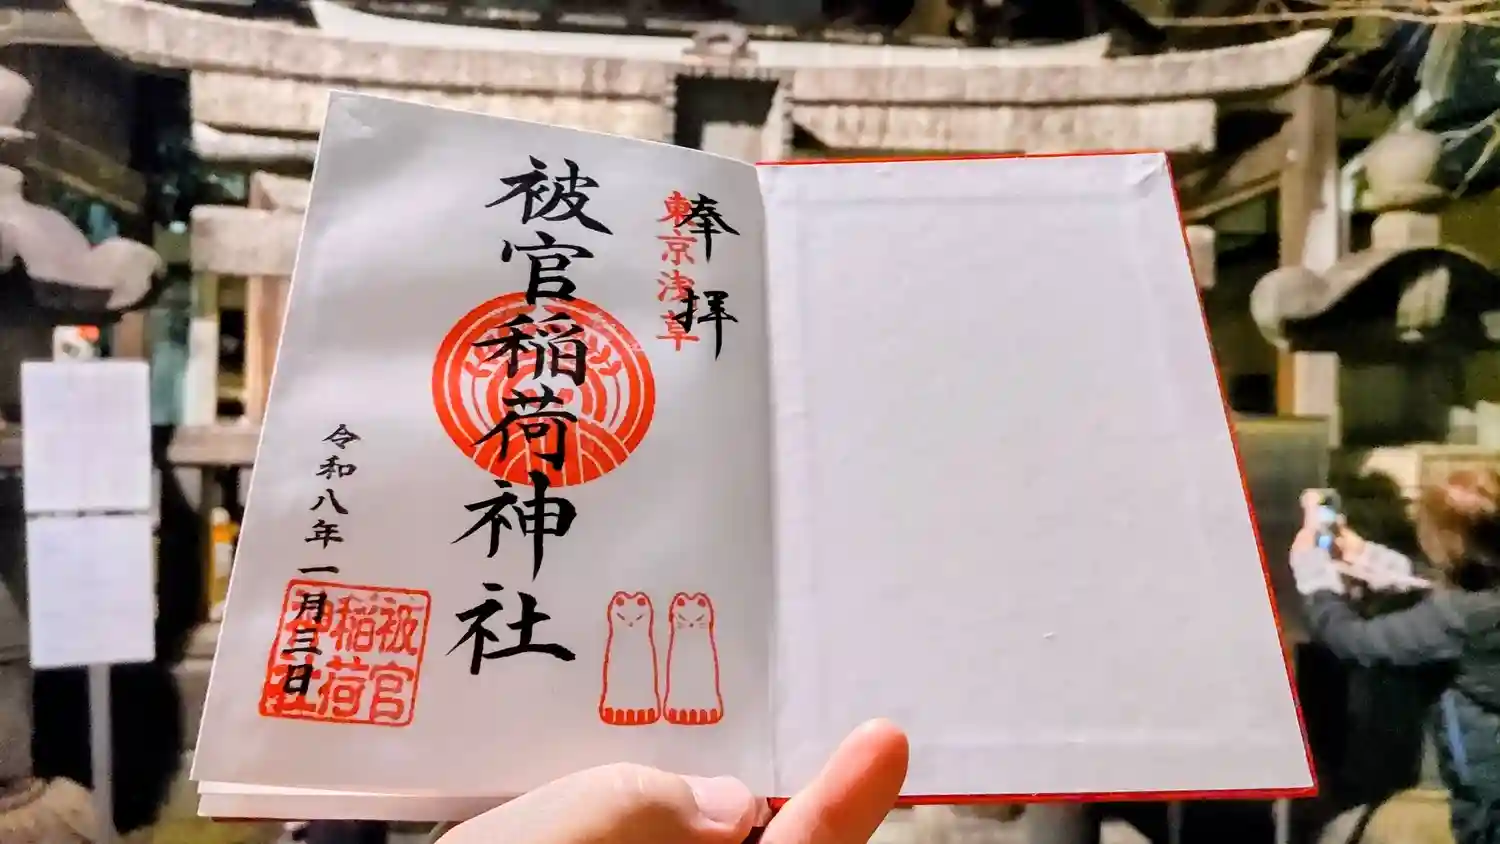 奉拝
東京浅草
被官稲荷神社
令和八年一月三日
被官
稲荷
神社